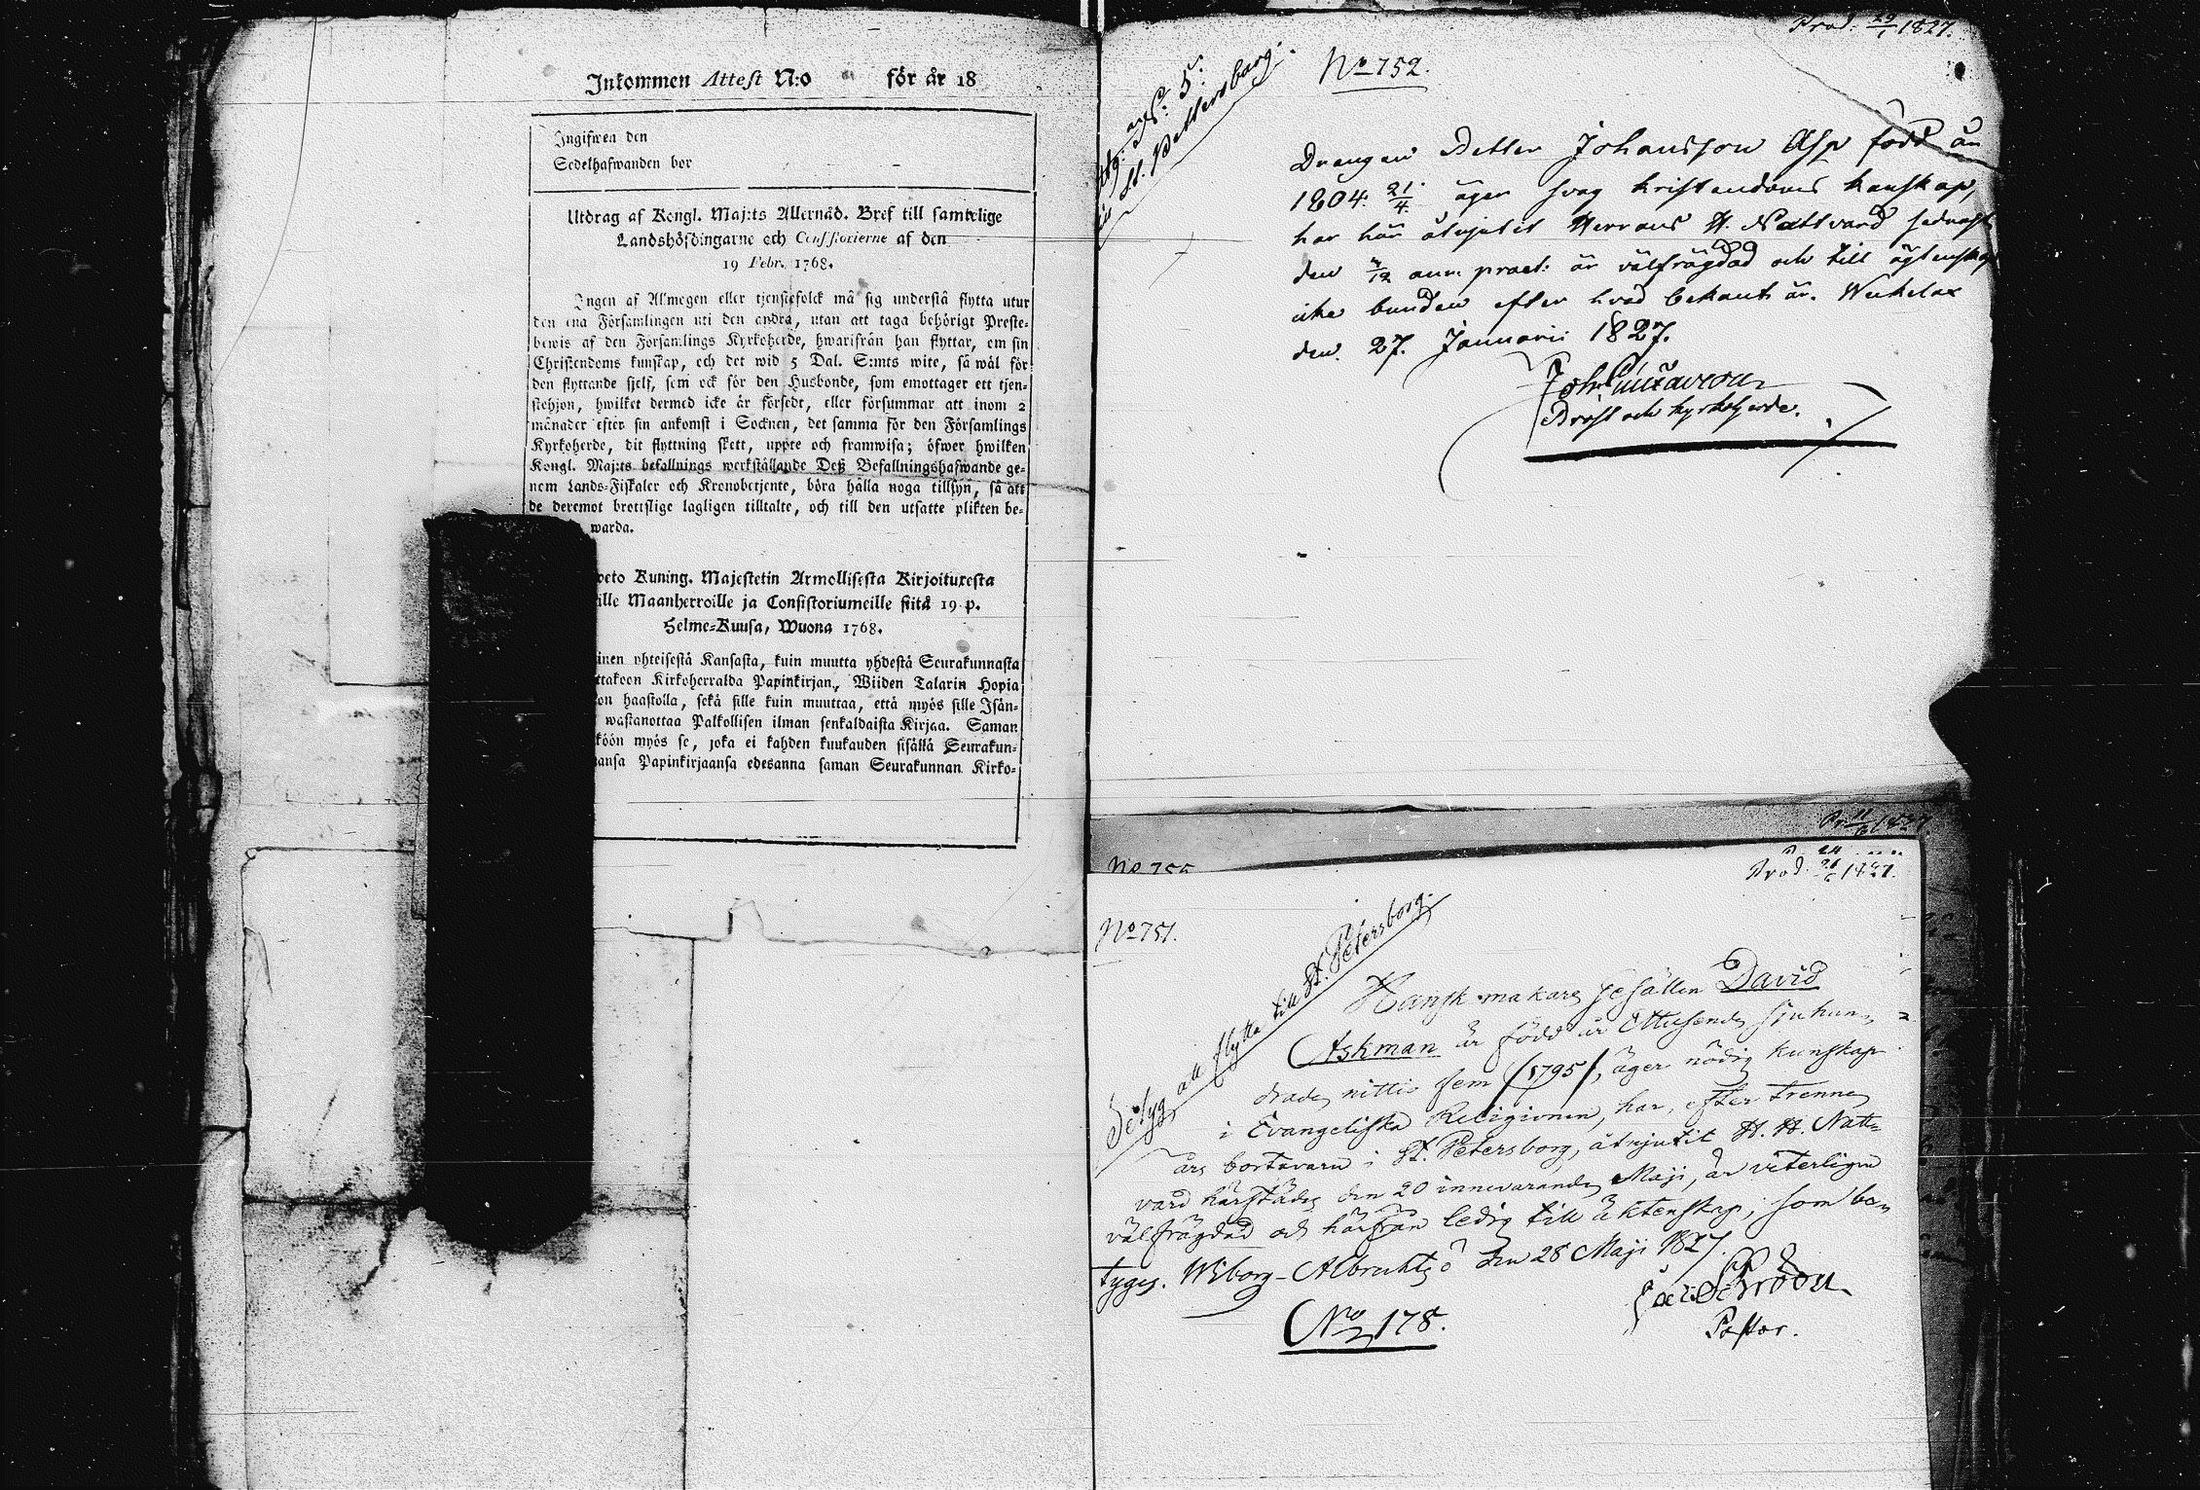 Inkommen Attest N:o för år 18
Ingifwen den
Sedelhafwanden bor
Utdrag af Kongl. Maj:ts Allernåd. Bref till samtelige
Landshöfdingarne och Consistorierne af den
19 Febr. 1768.
Ingen af Allmogen eller tjenstefolck må sig understå flytta utur
den ena Församlingen uti den andra, utan att taga behörigt Preste-
bewis af den Församlings Kyrkoherde, hwarifrån han flyttar, om sin
Christendoms kunskap, och det wid 5 Dal. S:mts wite, så wäl för
den flyttande sjelf, som ock för den Husbonde, som emottager ett tjen-
stehjon, hwilket dermed icke är försedt, eller försummar att inom 2
månader efter sin ankomst i Socknen, det samma för den Församlings
Kyrkoherde, dit flyttning skett, uppte och framwisa; öfwer hwilken
Kongl. Maj:ts befallnings werkställande Deß Befallningshafwande ge-
nom Lands-Fiskaler och Kronobetjente, böra hålla noga tillsyn, så att
de deremot brottslige lagligen tilltalte, och till den utsatte plikten be-
warda.
weto Kuning. Majestetin Armollisesta Kirjoituxesta
ille Maanherroille ja Consistoriumeille siitä 19 p.
Helme-Kuusa, Wuona 1768.
inen yhteisestä Kansasta, kuin muutta yhdestä Seurakunnasta
ttakoon Kirkoherralda Papinkirjan, Wiiden Talarin Hopia
on haastolla, sekä sille kuin muuttaa, että myös sille Isän-
wastanottaa Palkollisen ilman senkaldaista Kirjaa. Saman
köön myös se, joka ei kahden kuukauden sisällä Seurakun-
ansa Papinkirjaansa edesanna saman Seurakunnan Kirko-
Prod. 29/1 1827.
No 752.
St. Pettersborg.
Drengen Petter Johansson Asp född år
1804. 21/4. äger svag kristendoms kunskap,
har här åtnjutit Herrans H. Nattvard sednast
den /12 ann. praet: är välfrägdad och till ägtenskap
icke bunden efter hvad bekant är. Wekelax
den 27. Januarii 1827.
Prost och kyrkoherde.
No 755
Prod. 1827.
No 751.
Betyg att flytta till St. Petersborg.
Hanskmakare gesällen David
Askman är född år Ettusende sjuhun-
drade nittio fem /1795/, äger nödig kunskap
i Evangeliska Religionen, har, efter trenne
års bortovaro i St. Petersborg, åtnjutit H. H. Natt-
vard härstädes den 20 innevarande Maji, är veterligen
välfrägdad och härifrån ledig till äktenskap; som be-
tygas. Wiborg-Albrechtsö den 28 Maji 1827.
Pastor.
No 178.